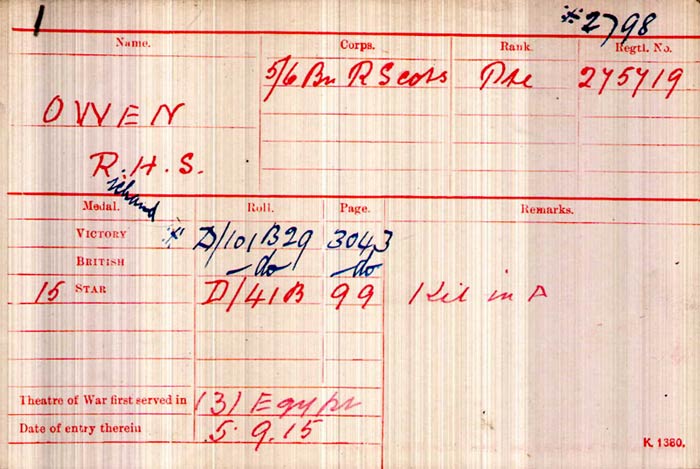 1
* 2798
Name. Corps. Rank. Regtl. No.
5/6 Bn R Scots Pte 275719
OWEN
R. H. S.
ichard
Medal. Roll. Page. Remarks.
VICTORY * D/101 B29 3043
BRITISH —do —do
15 STAR D/41B 99 Kil in A
Theatre of War first served in (3) Egypt
Date of entry therein 5.9.15
K. 1380.